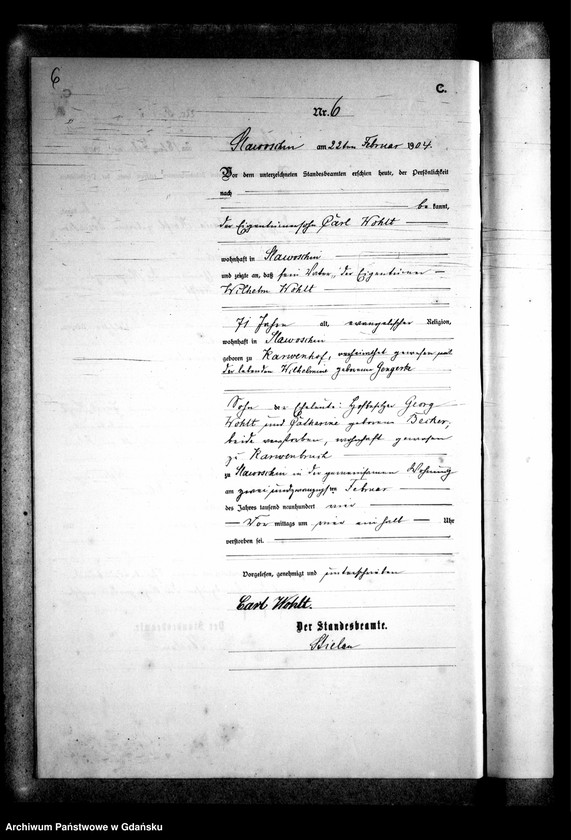 6
C.
Nr. 6
Slawoschin am 22ten Februar 1904.
Vor dem unterzeichneten Standesbeamten erschien heute, der Persönlichkeit
nach
be kannt,
der Eigentümersohn Carl Wohlt
wohnhaft in Slawoschin
und zeigte an, daß sein Vater, der Eigentümer
Wilhelm Wohlt
71 Jahre alt, evangelischer Religion,
wohnhaft in Slawoschin
geboren zu Karwenhof, verheirathet gewesen mit
der lebenden Wilhelmine geborenen
Sohn der Eheleute: Hofbesitzer Georg
Wohlt und Catharine geborenen Decker,
beide verstorben, wohnhaft gewesen
zu Karwenbruch
zu Slawoschin in der gemeinsamen Wohnung
am zwei und zwanzigsten Februar
des Jahres tausend neunhundert vier
Vor mittags um vier ein halb Uhr
verstorben sei.
Vorgelesen, genehmigt und unterschrieben
Carl Wohlt.
Der Standesbeamte.
Archiwum Państwowe w Gdańsku